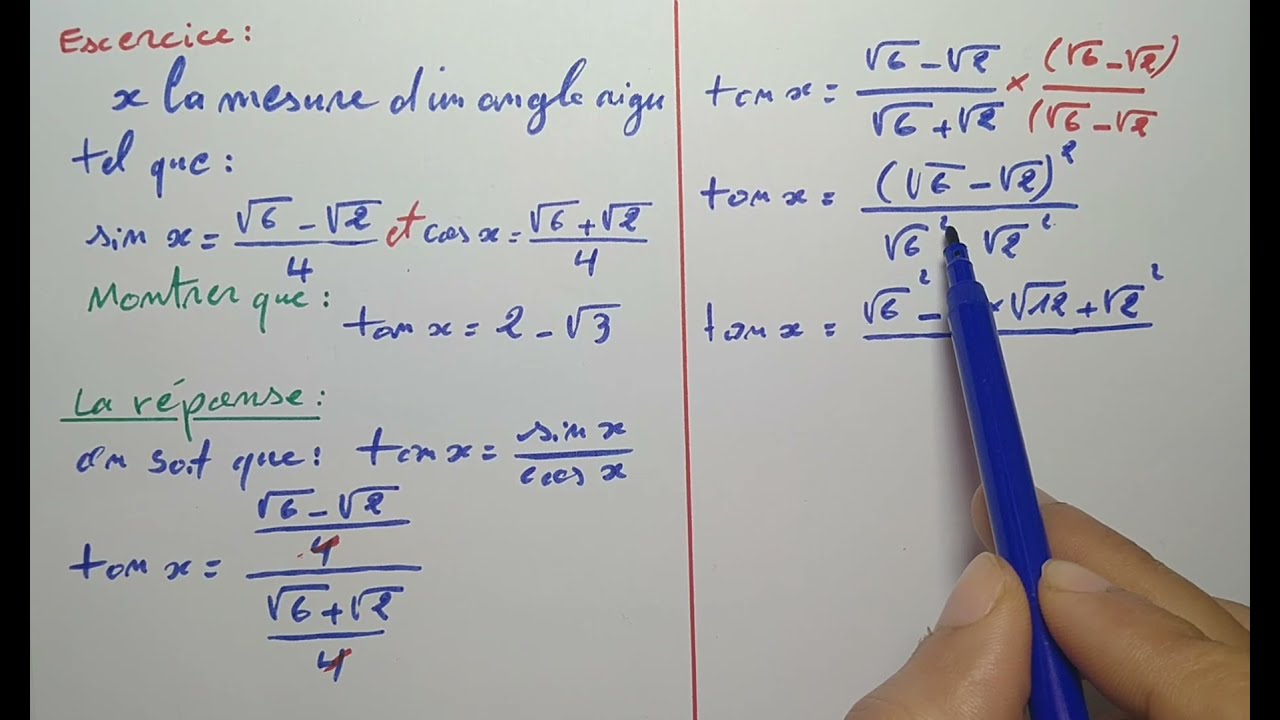 Escercice:
x la mesure d'un angle aigu
tel que:
sin x = (√6 - √2)/4 et cos x = (√6 + √2)/4
Montrer que:
tan x = 2 - √3
La réponse:
on sait que: tan x = sin x / cos x
tan x = ((√6 - √2)/4) / ((√6 + √2)/4)
tan x = (√6 - √2)/(√6 + √2) × (√6 - √2)/(√6 - √2
tan x = (√6 - √2)² / √6² √2²
tan x = √6² - × √12 + √2²